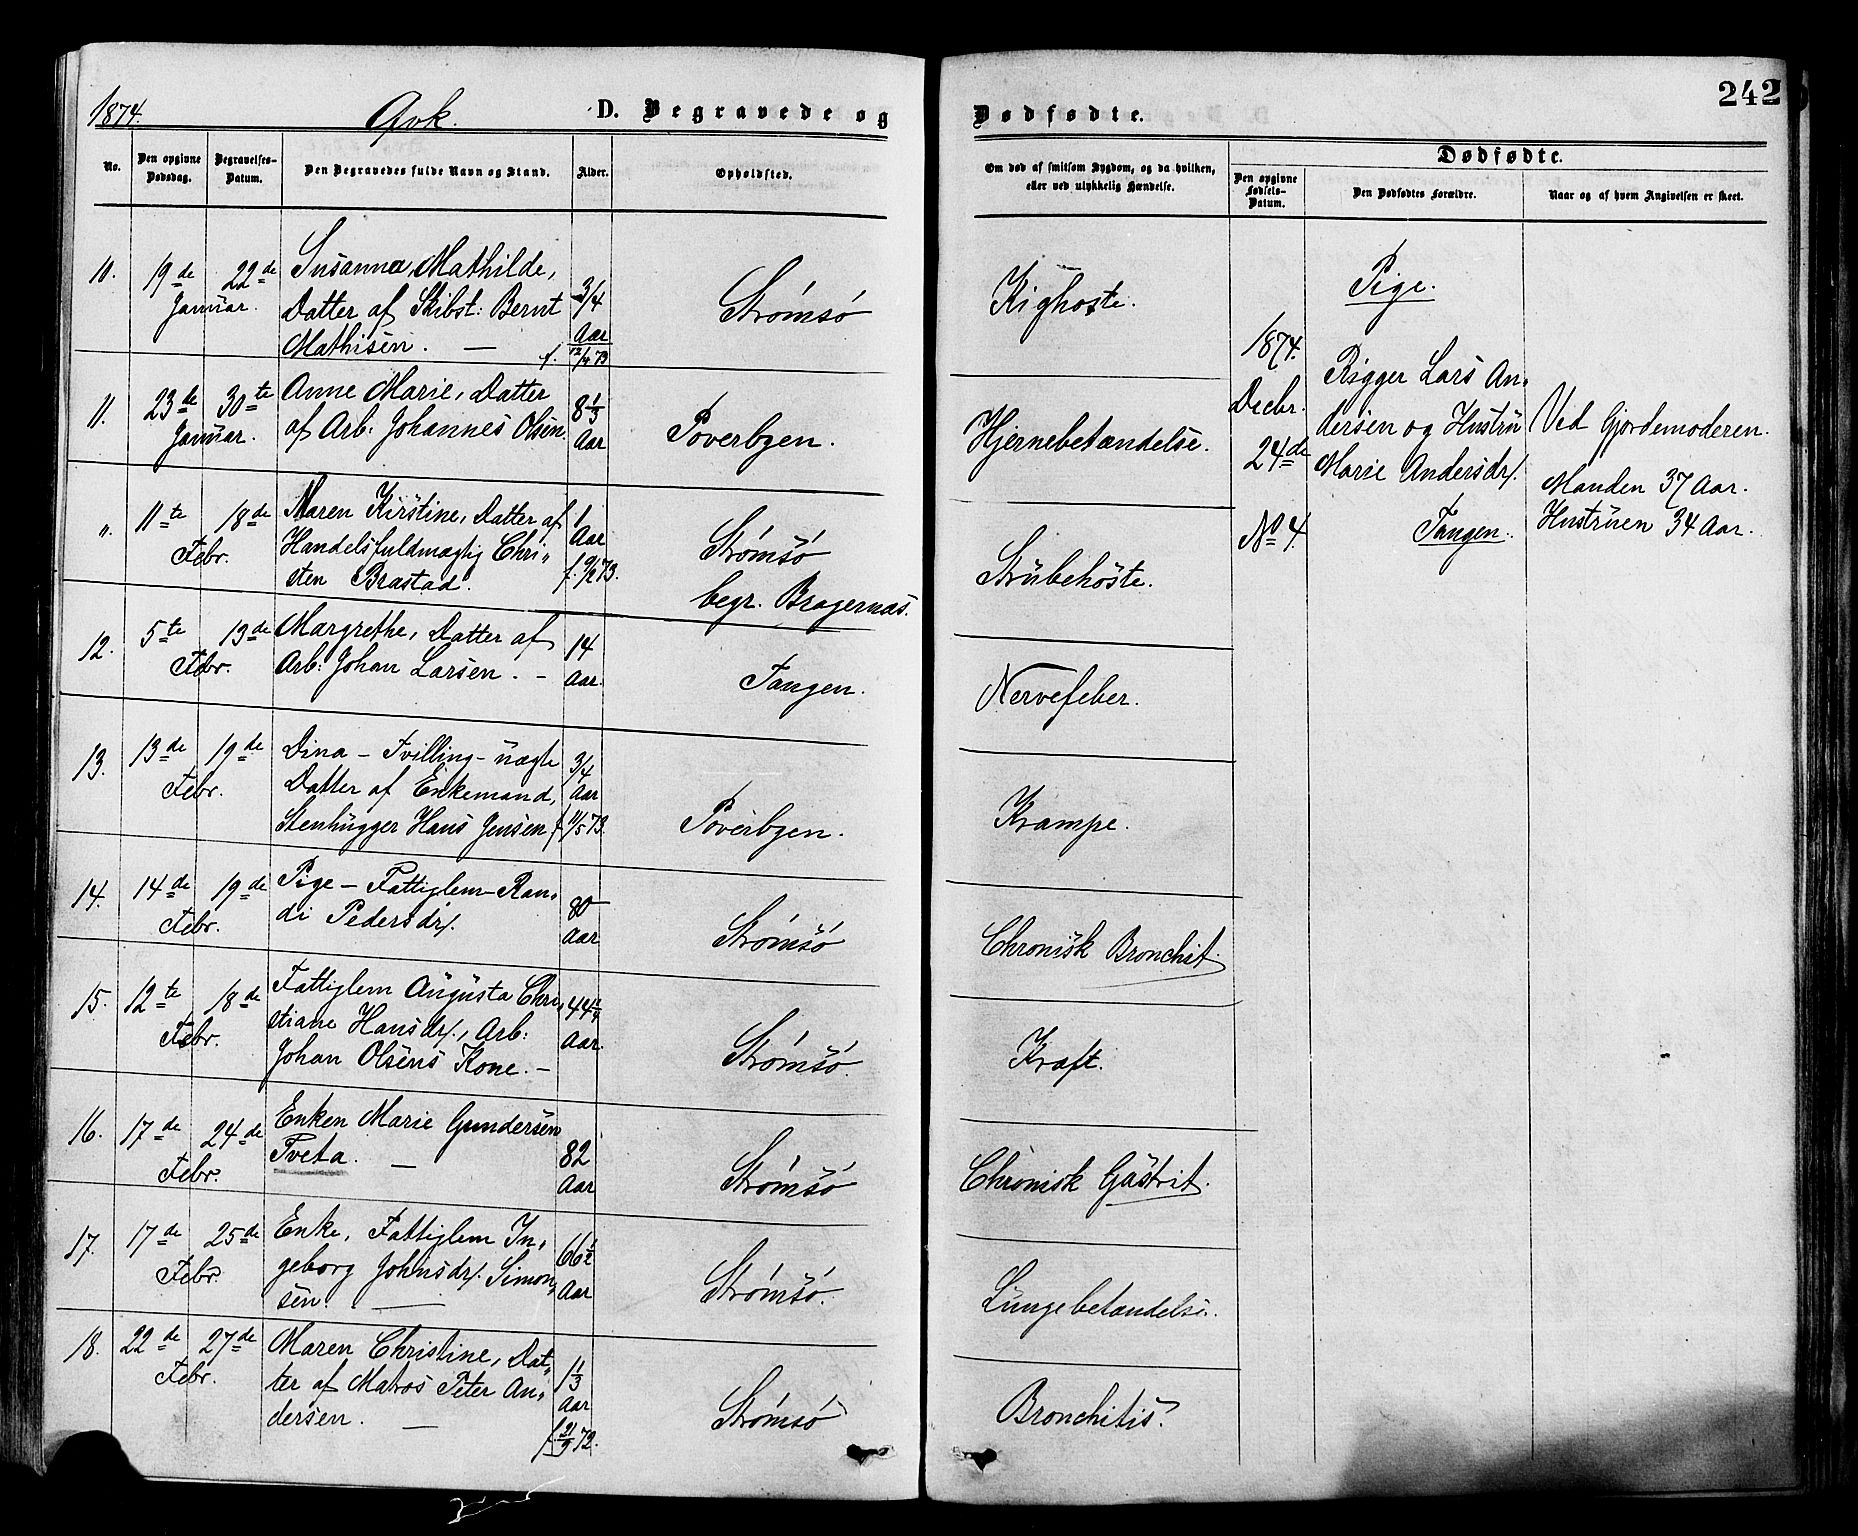 1874. Qvk. D. Begravede og
No.
Den opgivne Dødsdag.
Begravelses-Datum.
Den Begravedes fulde Navn og Stand.
Alder.
Opholdssted.
10. 19de 22de Januar.
Susanna Mathilde,
Datter af Skibst: Bernt
Mathisen. —
3/4 Aar
Strømsø
11. 23de 30te Januar.
Anne Marie, Datter
af Arb. Johannes Olsen.
8 1/3 Aar
Toverbgen.
". 11te 18de Febr.
Maren Kirstine, Datter af
Handelsfuldmægtig Chri-
sten Brastad.
1 Aar
Strømsø
begr. Bragernæs.
12. 5te 13de Febr.
Margrethe, Datter af
Arb: Johan Larsen. -
14 Aar.
Tangen.
13. 13de 19de Febr.
Dina - Tvilling - uægte
Datter af Enkemand,
Stenhugger Hans Jensen
3/4 Aar
f. 11/5 73.
Toverbgen.
14. 14de 19de Febr.
Pige - Fattiglem - Ran-
di Pedersdr.
80 Aar
Strømsø
15. 12te 18de Febr.
Fattiglem Augusta Chri-
stiane Hansdr., Arb:
Johan Olsens Kone. -
Aar.
Strømsø.
16. 17de 24de Febr.
Enken Marie Gundersen
Tveta. —
82 Aar
Strømsø
17. 17de 25de Febr
Enke, Fattiglem In-
geborg Johnsdr. Simon-
sen. —
66 1/2 Aar
Strømsø.
18. 22de 27de Febr.
Maren Christine, Dat-
ter af Matros Peter An-
dersen. —
1 1/3 Aar
f. 21/9 72.
Strømsø
242
Dødfødte.
Om død af smitsom Sygdom, og da hvilken,
eller ved ulykkelig Hændelse.
Dødfødte.
Den opgivne Fødsels-Datum.
Den Dødfødtes Forældre.
Naar og af hvem Angivelsen er skeet.
Kighoste.
Hjernebetændelse.
Strubehoste.
Nervefeber.
Krampe.
Chronisk Bronchit.
Kræft.
Chronisk Gastrit.
Lungebetændelse.
Bronchitis.
1874.
Decbr.
24de
No 4.
Pige.
Rigger Lars An-
dersen og Hustru
Marie Andersdr.
Tangen.
Ved Gjordemoderen.
Manden 37 Aar.
Hustruen 34 Aar.